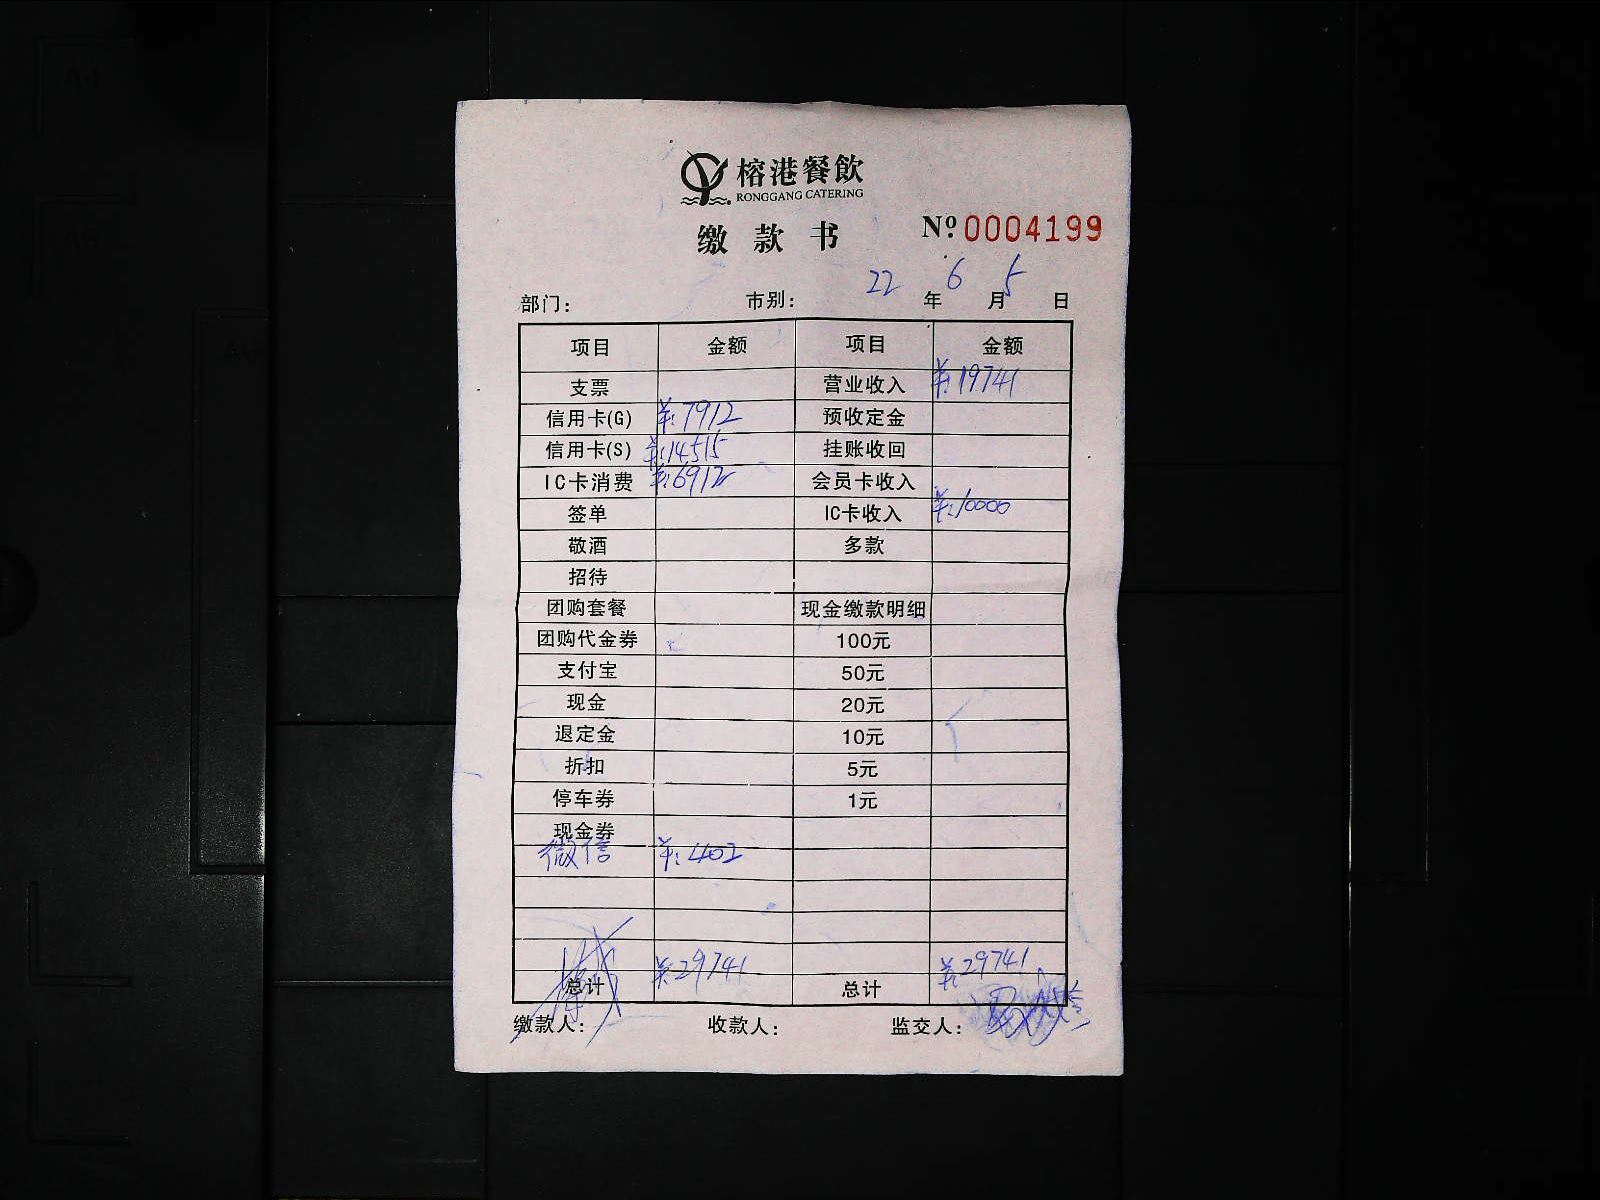 榕港餐飲
RONGGANG CATERING
缴款书
Nº 0004199
部门: 市别: 22 年 6 月 5 日
项目 金额 项目 金额
支票 营业收入 ¥:19741
信用卡(G) ¥:7912 预收定金
信用卡(S) ¥:14515 挂账收回
IC卡消费 ¥:6912 会员卡收入
签单 IC卡收入 ¥:10000
敬酒 多款
招待
团购套餐 现金缴款明细
团购代金券 100元
支付宝 50元
现金 20元
退定金 10元
折扣 5元
停车券 1元
现金券
微信 ¥:402
总计 ¥:29741 总计 ¥:29741
缴款人: 收款人: 监交人: